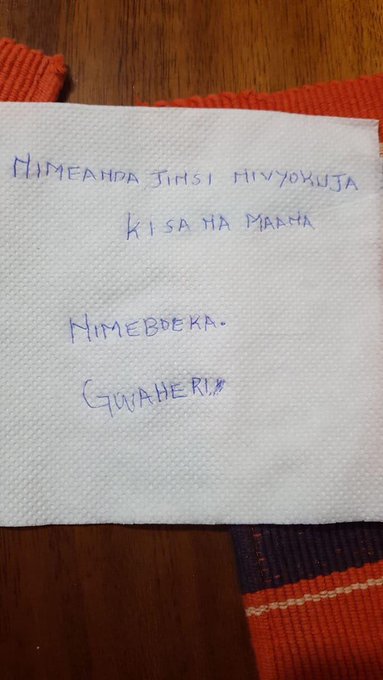 NIMEANDA JINSI NIVYOKUJA
KISA NA MAANA
NIMEBDEKA.
GWAHERI.